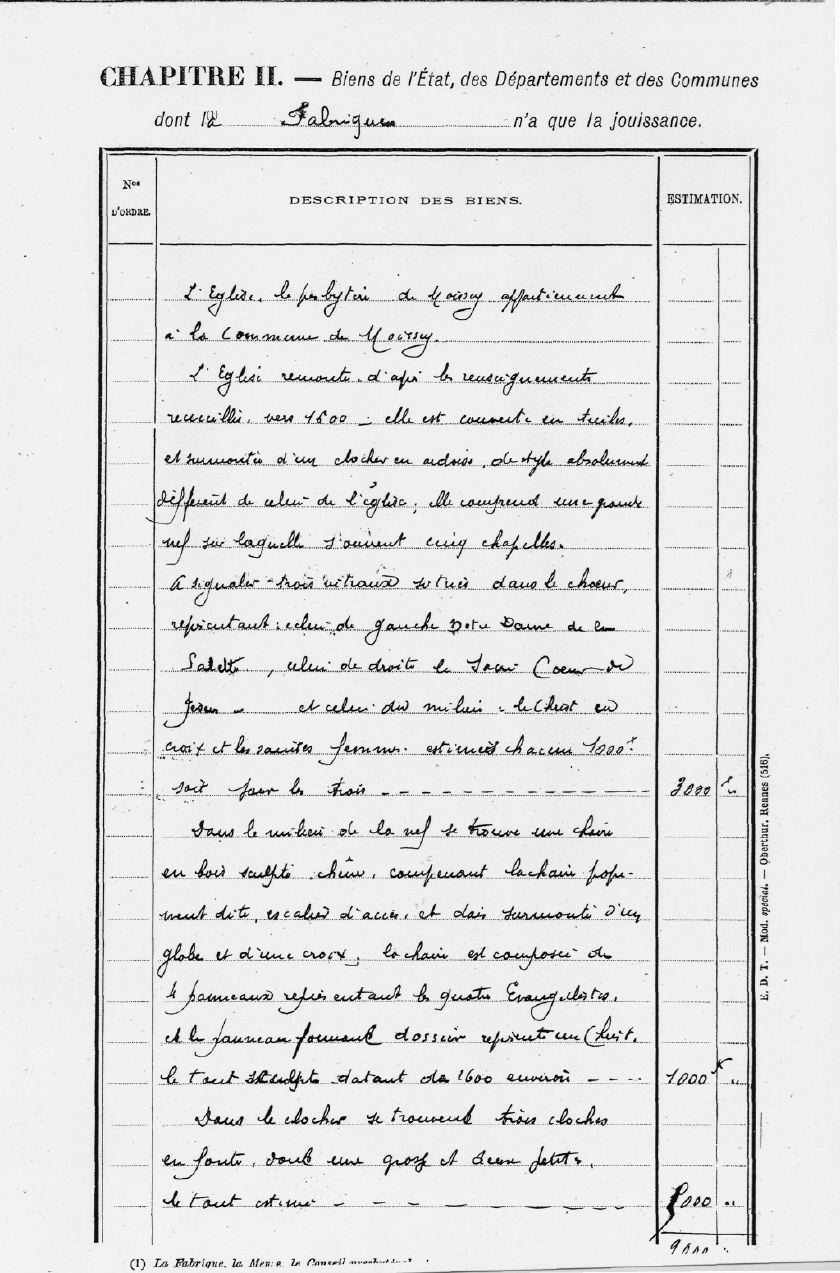 CHAPITRE II. — Biens de l'État, des Départements et des Communes
dont la Fabrique n'a que la jouissance.
Nos D'ORDRE.
DESCRIPTION DES BIENS.
ESTIMATION.
L'Eglise, le presbytère de Moissey appartiennent
à la Commune de Moissey.
L'Eglise remonte d'après les renseignements
recueillis, vers 1500 – elle est couverte en tuiles,
et surmontée d'un clocher en ardoise, de style absolument
différent de celui de l'église; elle comprend une grande
nef sur laquelle s'ouvrent cinq chapelles.
A signaler trois vitraux situés dans le choeur,
représentant: celui de gauche Notre Dame de la
Salette, celui de droite le Sacré Coeur de
Jésus – et celui du milieu – le Christ en
croix et les saintes femmes. estimés chacun 1000 f
soit pour les trois – – – – – 3000 f "
Dans le milieu de la nef se trouve une chaire
en bois sculpté chêne, comprenant la chaire propre-
ment dite, escalier d'accès, et dais surmonté d'un
globe et d'une croix. la chaire est composée de
4 panneaux représentant les quatre Evangélistes,
et le panneau formant dossier représente un Christ.
le tout sculpté datant de 1600 environ – – – 1000 f "
Dans le clocher se trouvent trois cloches
en fonte, dont une grosse et deux petites,
le tout estimé – – – – – 5000 "
9000 "
(1) La Fabrique, la Mense, le Conseil
E. D. T. — Mod. spécial. — Oberthur, Rennes (516).